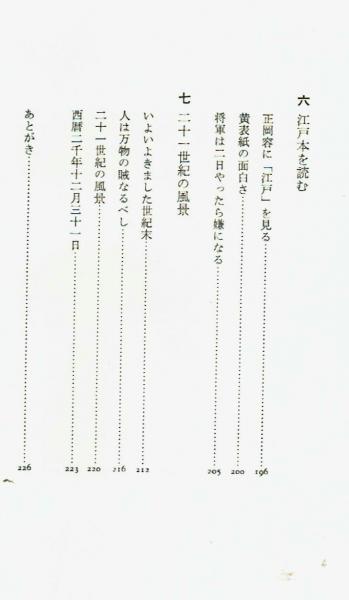 六 江戸本を読む
正岡容に「江戸」を見る……………………196
黄表紙の面白さ……………………200
将軍は二日やったら嫌になる……………………205
七 二十一世紀の風景
いよいよきました世紀末……………………212
人は万物の賊なるべし……………………216
二十一世紀の風景……………………220
西暦二千年十二月三十一日……………………223
あとがき……………………226